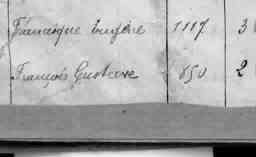 Francisque Eugène 1117 3
François Gustave 850 2